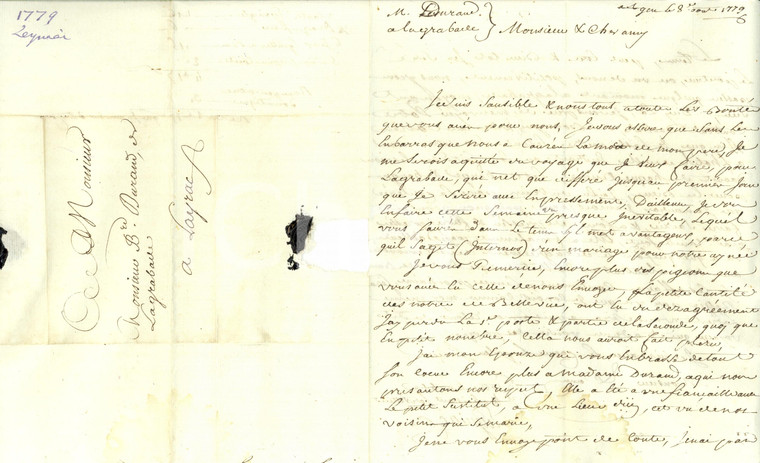 1779
Leymié
A Monsieur
Monsieur Bd. Durand, de
Lagrabade
a Layrac
M. Durand
a Lagrabade } Monsieur & Cher amy
agen le 8e 1779
Je suis sansible & nous tous a toute Les Bonté
que vous avés pour nous, Je vous assure que sans Les
Embarras que nous a Causés La mort de mon pere, Je
me serois aquitté du voyage que Je dois faire, pour
Lagrabade, qui n'est que differé Jusqu'au premier Jour
que Je Seray avec Empressement, D'ailleurs J'en
Enfaire cette Semaine presque Inévitable, Lequel
vous Saurés dans Le tems, Il m'est avantageux, parce
qu'il s'agit (Internos) d'un mariage pour notre aynée
Je vous Remercie, Encore plus des pigeons que
vous avés eu celle de nous Envoyer, La petite Cantité
des notre de Bellevue, ont eu du dezagréement
J'ay perdu La 1e porte & partie de la Seconde, quoy que
En petit nombre, Cella nous auroit fait plésir,
J'ai mon Epouze que vous Enbrasse de tout
son Coeur Encore plus a Madame Durand, a qui nous
présantons nos respet, Elle a été a une fiançaille dans
Le petit a une Lieue d'ici, cet un de nos
voisins qui Se marie,
Je ne vous Envoye point de Conte, Je n'ai pas